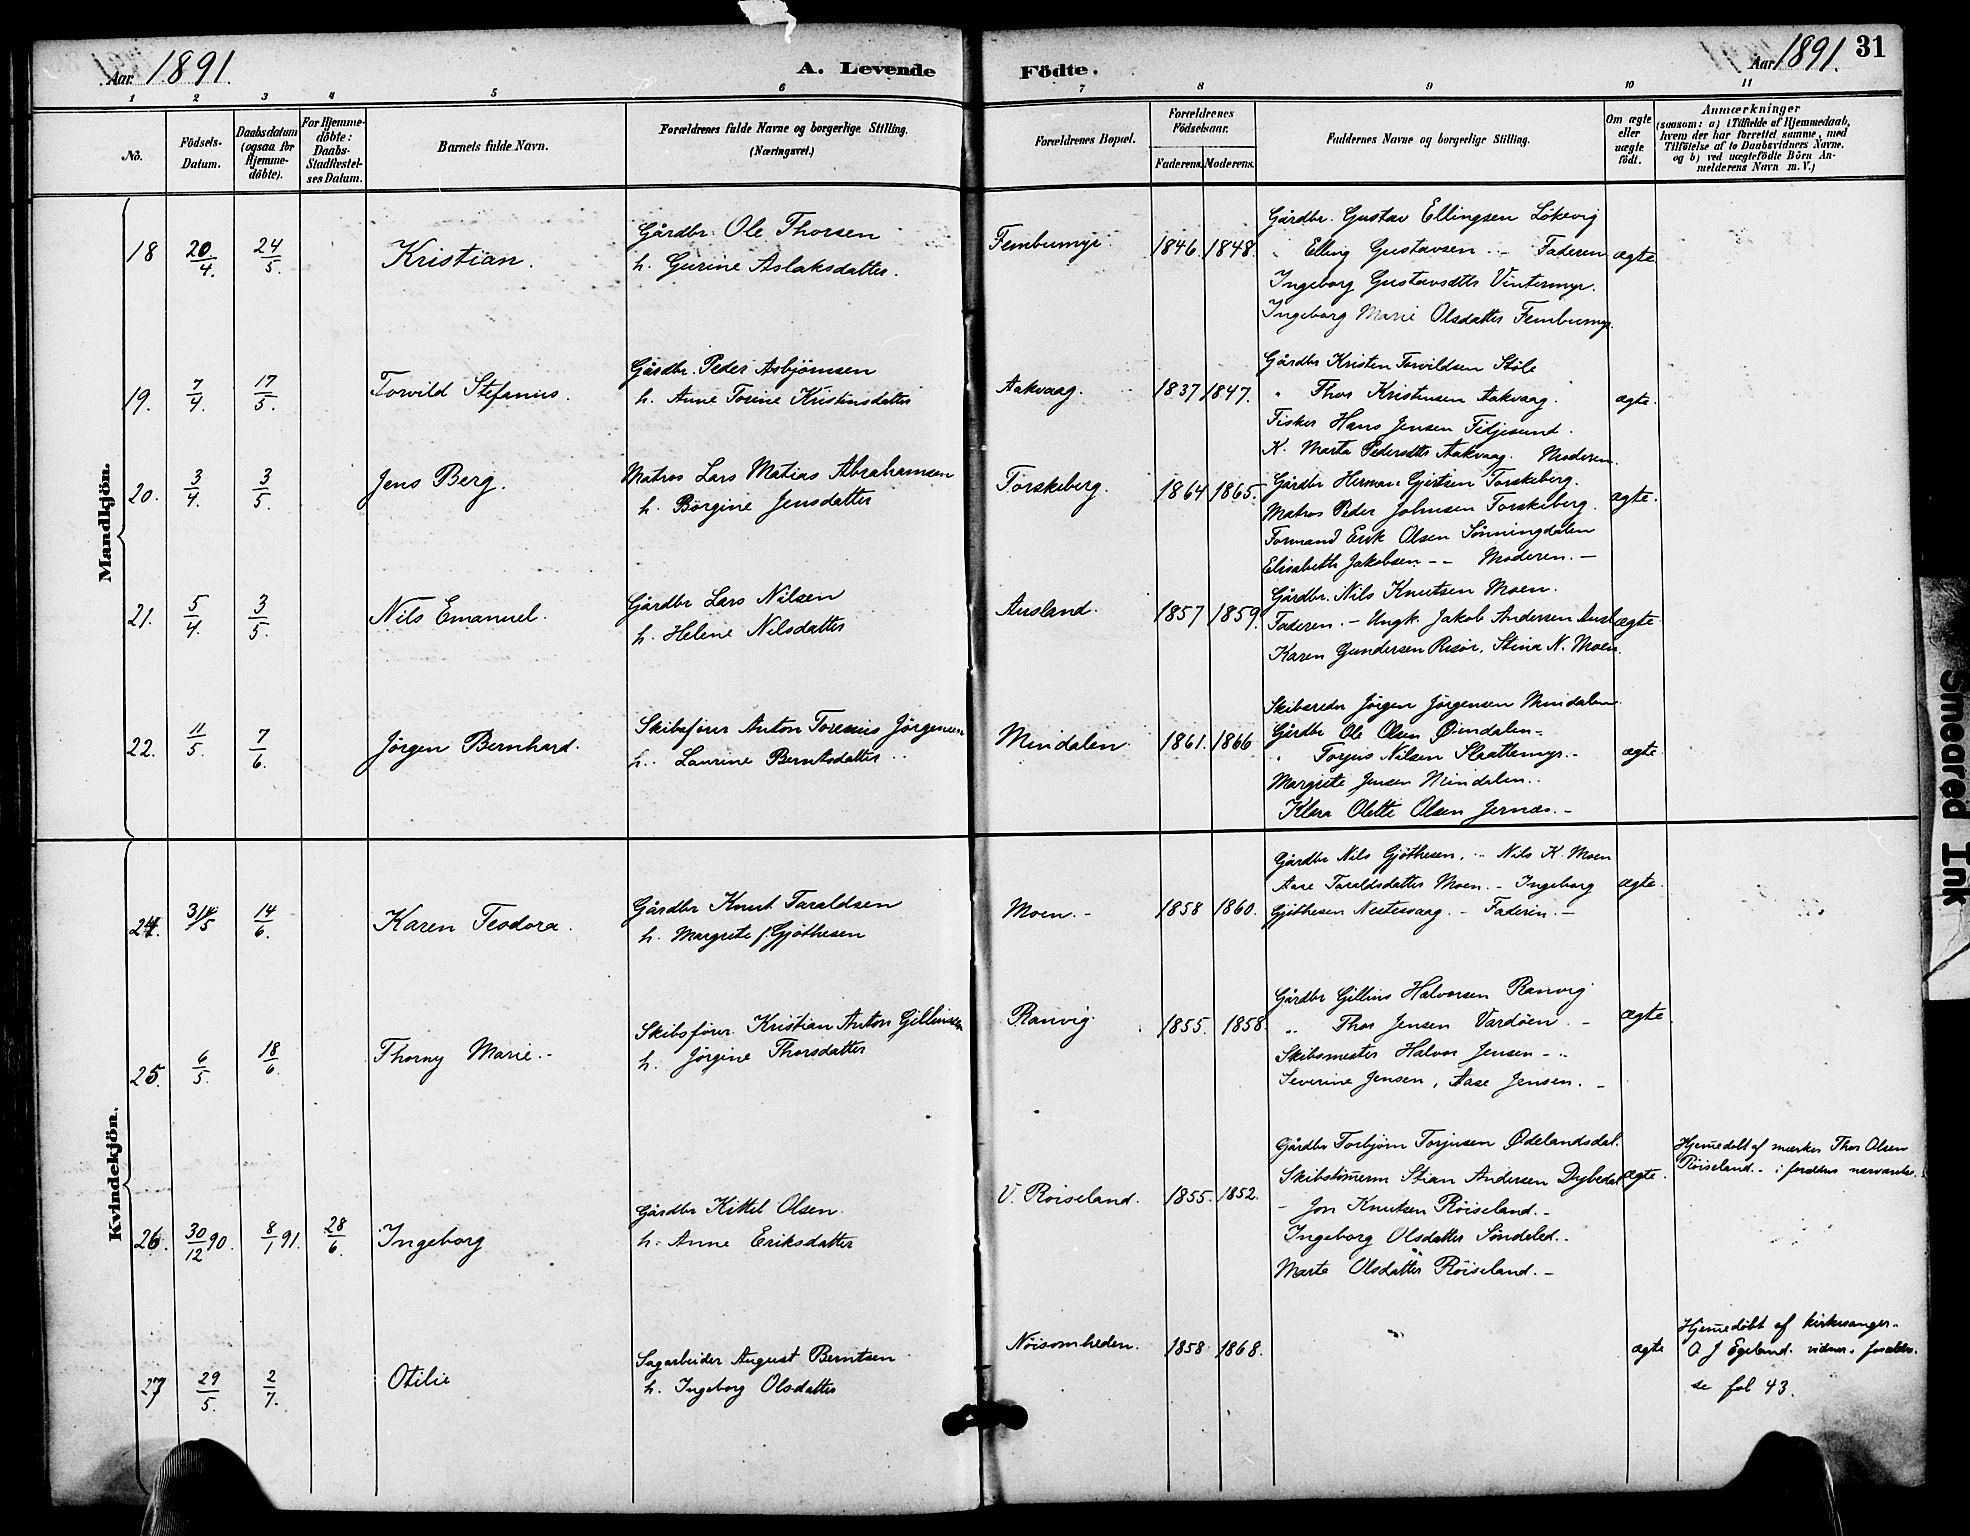 Aar 1891.
A. Levende Födte.
Aar 1891. 31
1 2 3 4 5 6 7 8 9 10 11
No.
Födsels-Datum.
Daabsdatum (ogsaa for Hjemme-döbte).
For Hjemme-döbte: Daabs-Stadfæstel-ses Datum.
Barnets fulde Navn.
Forældrenes fulde Navne og borgerlige Stilling.
(Næringsvei.)
Forældrenes Bopæl.
Forældrenes Födselsaar.
Faderens. Moderens.
Faddernes Navne og borgerlige Stilling.
Om ægte eller uægte födt.
Anmærkninger
(saasom: a) i Tilfælde af Hjemmedaab, hvem der har forrettet samme, med Tilföielse af to Daabsvidners Navne. og b) ved uægtefödte Börn An-melderens Navn m. V.)
Mandkjön.
18 20/4. 24/5. Kristian.
Gårdbr. Ole Thorsen
h. Gurine Aslaksdatter.
Fembumyr. 1846. 1848.
Gårdbr. Gustav Ellingsen Lökevig
" Elling Gustavsen -- Faderen
Ingeborg Gustavsdtr Vintermyr.
Ingeborg Marie Olsdatter Fembumyr.
ægte
19. 7/4. 17/5. Torvild Stefanus.
Gårdbr. Peder Asbjörnsen
h. Anne Torine Kristensdatter
Aakvaag. 1837 1847.
Gårdbr Kristen Torvildsen Stöle
" Thor Kristensen Aakvaag.
Fisker Hans Jensen Tidjesund.
K. Marta Pedersdtr Aakvaag. Moderen.
ægte.
20. 3/4. 3/5. Jens Berg.
Matros Lars Matias Abrahamsen
h. Börgine Jensdatter
Torskeberg. 1864 1865.
Gårdbr Herman Gjertsen Torskeberg.
Matros Peder Johnsen Torskeberg.
Formand Erik Olsen Sönningdalen
Elisabeth Jakobsen -- Moderen. —
ægte.
21. 5/4. 3/5. Nils Emanuel.
Gårdbr Lars Nilsen
h. Helene Nilsdatter
Ausland. 1857 1859.
Gårdbr. Nils Knutsen Moen.
Faderen. – Ungk. Jakob Andersen Ausl.
Karen Gundersen Risör, Stina N. Moen.
ægte
22. 11/5. 7/6. Jörgen Bernhard.
Skibsförer Anton Toresius Jörgensen
h. Laurine Berntsdatter
Mindalen. 1861. 1866
Skibsreder Jörgen Jörgensen Mindalen.
Gårdbr Ole Olsen Öindalen-
" Torjus Nilsen Slaattemyr.-
Margrete Jensen Mindalen.
Klara Olette Olsen Jernæs.-
ægte
Kvindekjön.
24. 14/5 14/6. Karen Teodora.
Gårdbr Knut Taraldsen
h. Margrete f. Gjöthesen
Moen.- 1858 1860.
Gårdbr Nils Gjöthesen, -- Nils K. Moen
Aase Taraldsdatter Moen. - Ingeborg
Gjöthesen Nestesvaag. - Faderen. -
ægte.
25. 6/5. 18/6. Thorny Marie.-
Skibsförer. Kristian Anton Gillinsen
h. Jörgine Thorsdatter
Ranvig. 1855. 1858.
Gårdbr Gillius Halvorsen Ranvig
" Thor Jensen Vardöen. -
Skibsmester Halvor Jensen - "
Severine Jensen, Aase Jensen. -
ægte
26. 30/12 90. 8/1 91. 28/6. Ingeborg
Gårdbr Kittel Olsen.
h. Anne Eriksdatter
V. Röiseland. 1855. 1852.
Gårdbr Torbjörn Torjusen Ödelandsdal.
Skibstömrm Stian Andersen Dybedal
- Jon Knutsen Röiseland.-
Ingeborg Olsdatter Söndeled.-
Marte Olsdatter Röiseland.-
ægte.
Hjemedöbt af mærker Thor Olsen
Röiseland. - i foræders nærværelse.
27 29/5. 2/7. Otilie
Sagarbeider August Berntsen
h. Ingeborg Olsdatter
Nöisomheden. 1858 1868.
ægte
Hjemedöbt af kirkesanger.
O. J Egeland. vidner. foræld.
se fol 43.
Smeared Ink